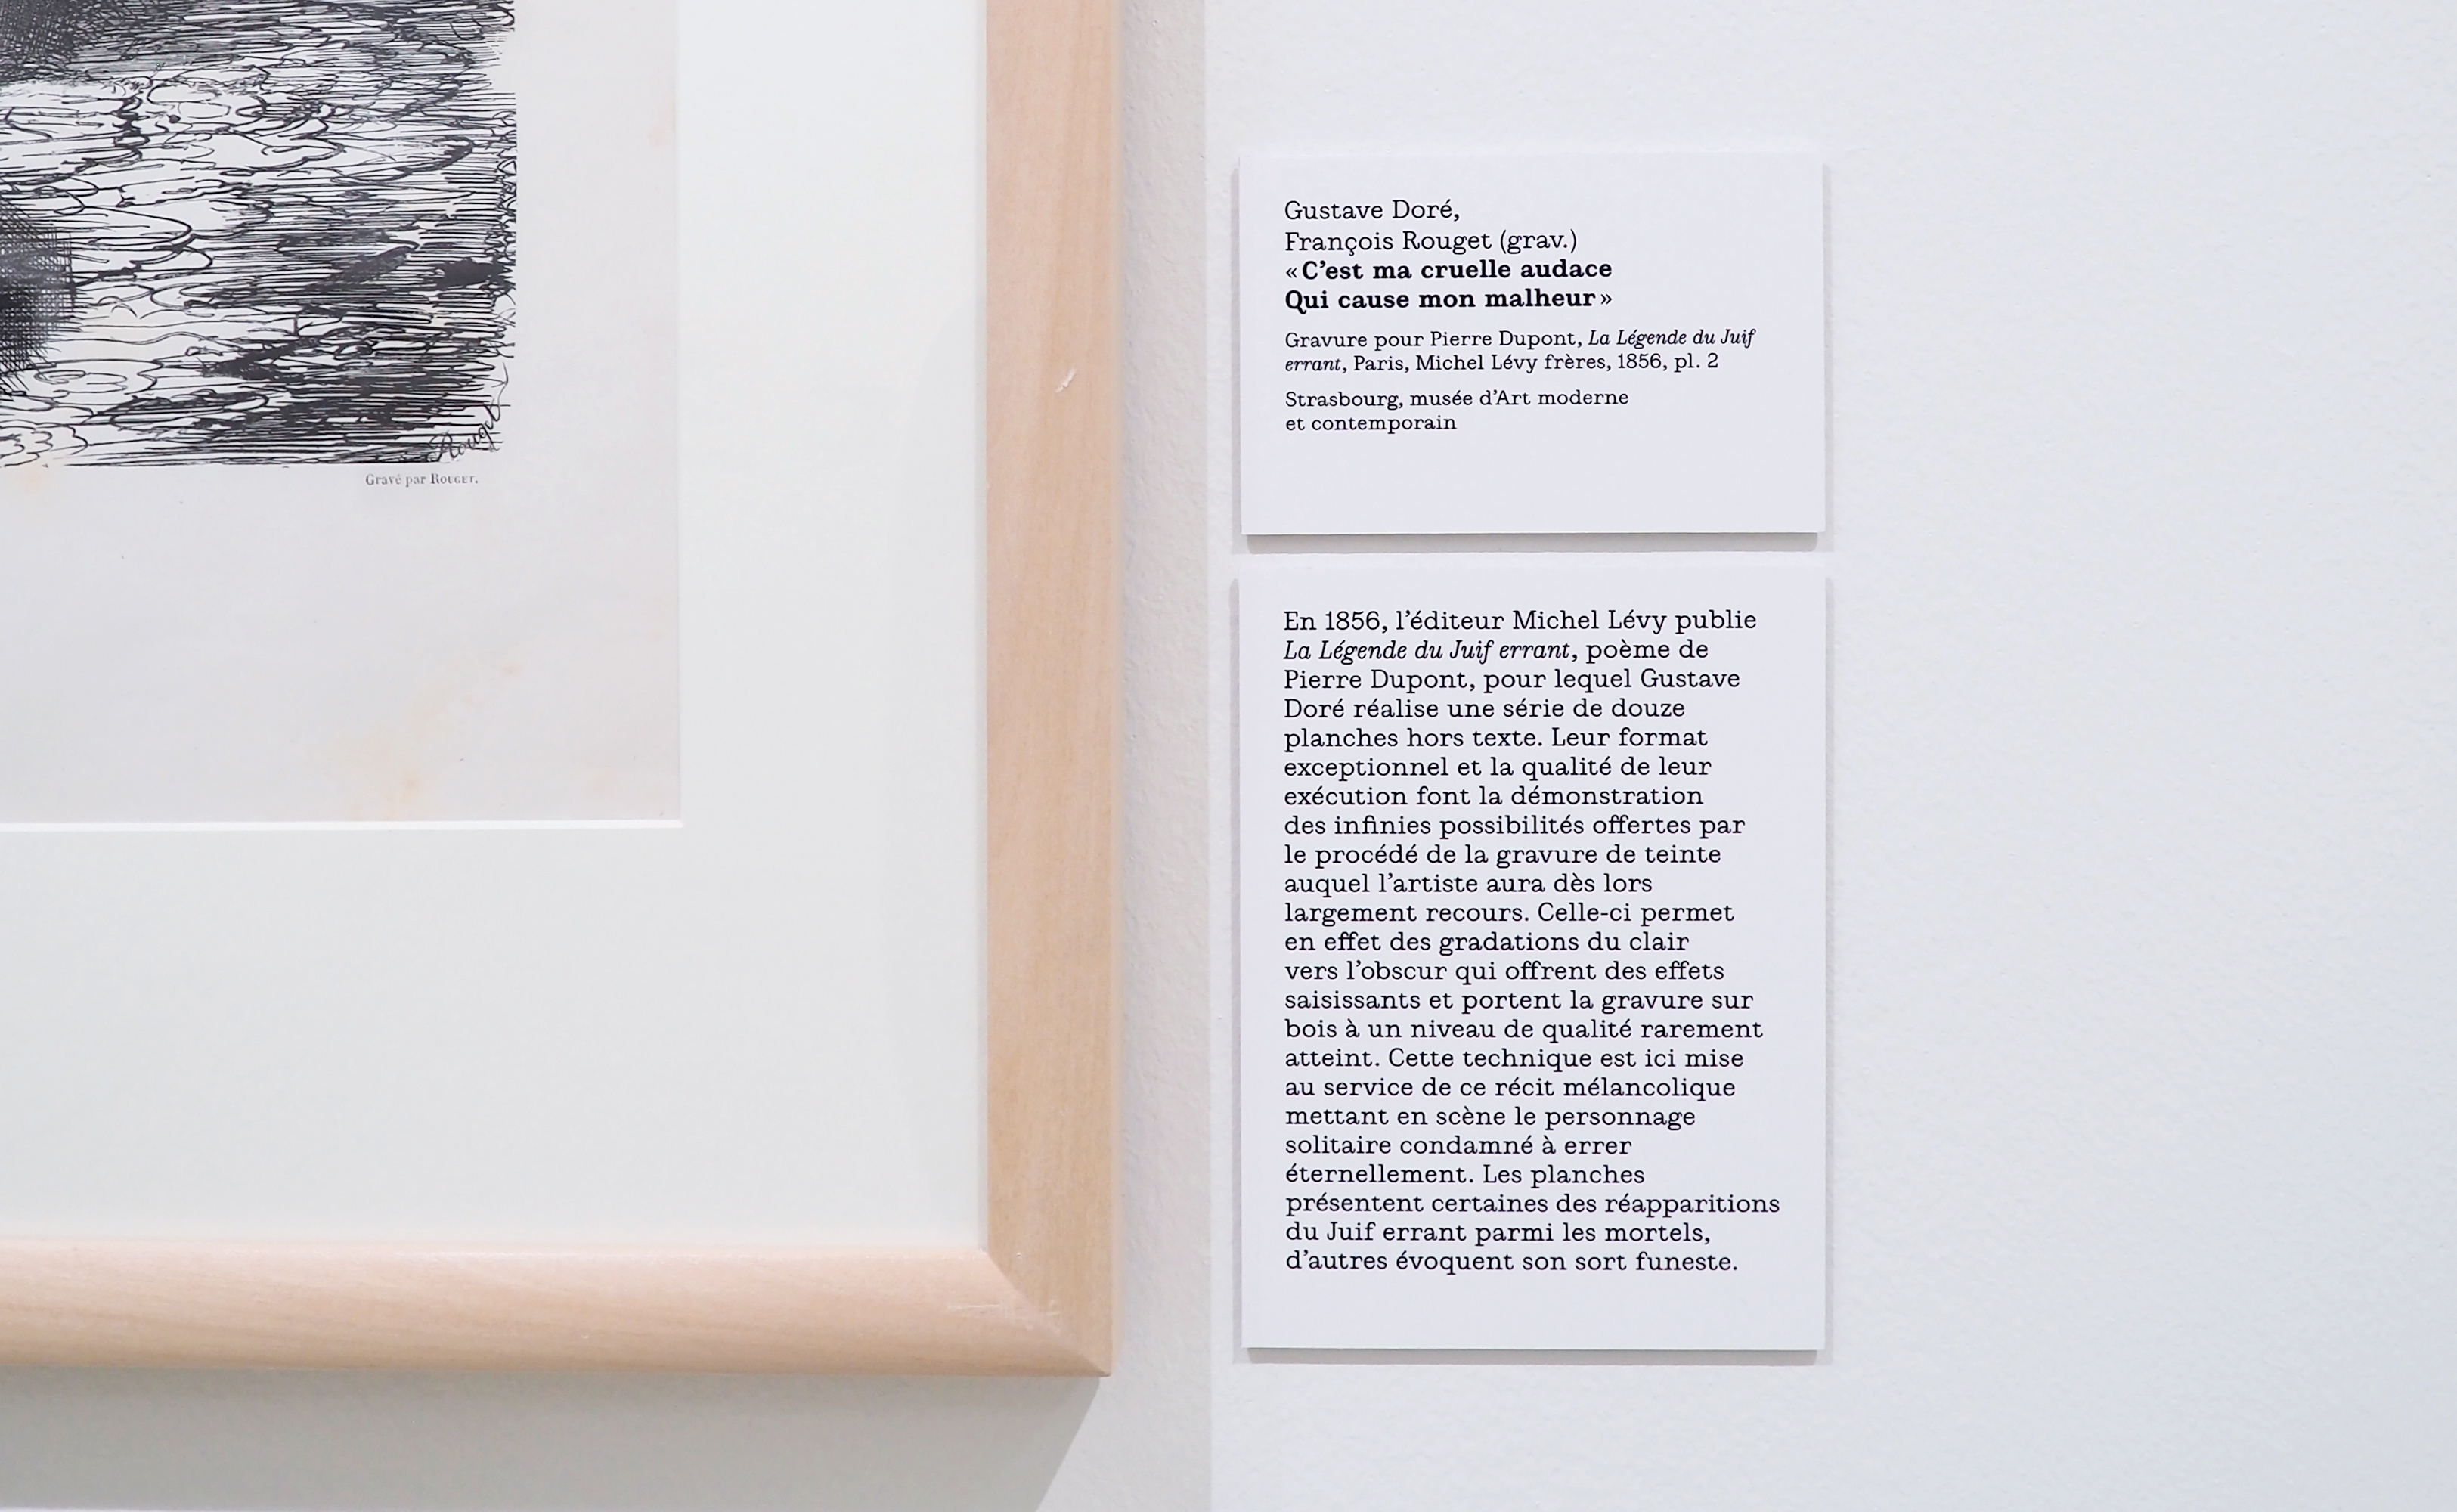 Rouget
Gravé par ROUGET.
Gustave Doré,
François Rouget (grav.)
« C’est ma cruelle audace
Qui cause mon malheur »
Gravure pour Pierre Dupont, La Légende du Juif
errant, Paris, Michel Lévy frères, 1856, pl. 2
Strasbourg, musée d’Art moderne
et contemporain
En 1856, l’éditeur Michel Lévy publie
La Légende du Juif errant, poème de
Pierre Dupont, pour lequel Gustave
Doré réalise une série de douze
planches hors texte. Leur format
exceptionnel et la qualité de leur
exécution font la démonstration
des infinies possibilités offertes par
le procédé de la gravure de teinte
auquel l’artiste aura dès lors
largement recours. Celle-ci permet
en effet des gradations du clair
vers l’obscur qui offrent des effets
saisissants et portent la gravure sur
bois à un niveau de qualité rarement
atteint. Cette technique est ici mise
au service de ce récit mélancolique
mettant en scène le personnage
solitaire condamné à errer
éternellement. Les planches
présentent certaines des réapparitions
du Juif errant parmi les mortels,
d’autres évoquent son sort funeste.